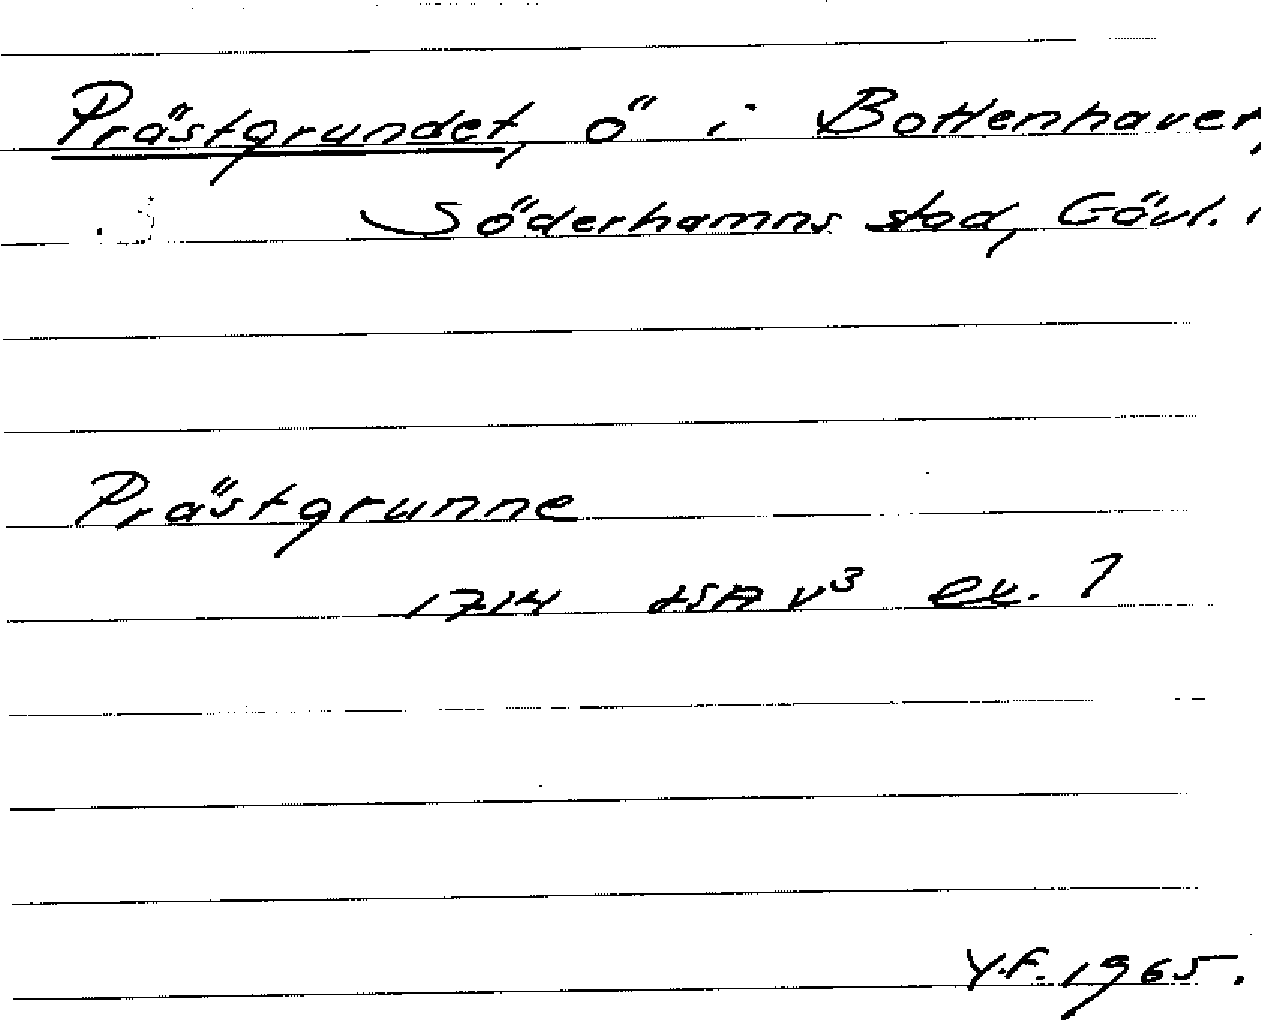 Prästgrundet, ö i Bottenhavet,
Söderhamns stad, Gävl.
Prästgrunne
1714 v³ ev. 7
Y.F. 1965.